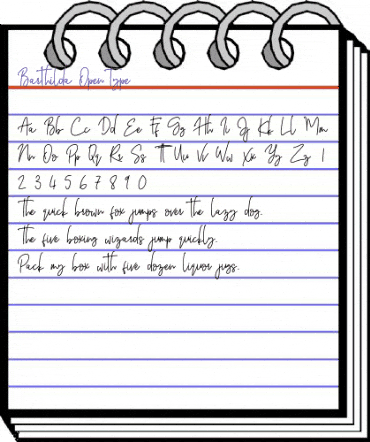 Basthilda Open Type
Aa Bb Cc Dd Ee Ff Gg Hh Ii Jj Kk Ll Mm
Nn Oo Pp Qq Rr Ss Tt Uu Vv Ww Xx Yy Zz 1
2 3 4 5 6 7 8 9 0
The quick brown fox jumps over the lazy dog.
The five boxing wizards jump quickly.
Pack my box with five dozen liquor jugs.